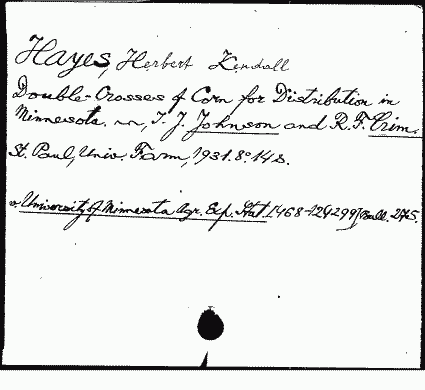 Hayes, Herbert Kendall
Double-Crosses of Corn for Distribution in
Minnesota. ~, I. J. Johnson and R. F. Crim.
St. Paul, Univ. Farm, 1931. 8° 14 s.
University of Minnesota Agr. Exp. Stat. Bull. 275.